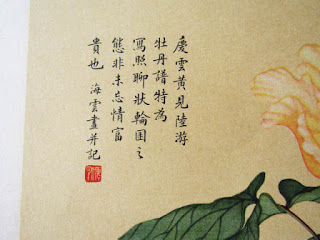 慶雲黃見陸游
牡丹譜特為
寫照聊狀輪囷之
態非未忘情富
貴也 海雲畫并記